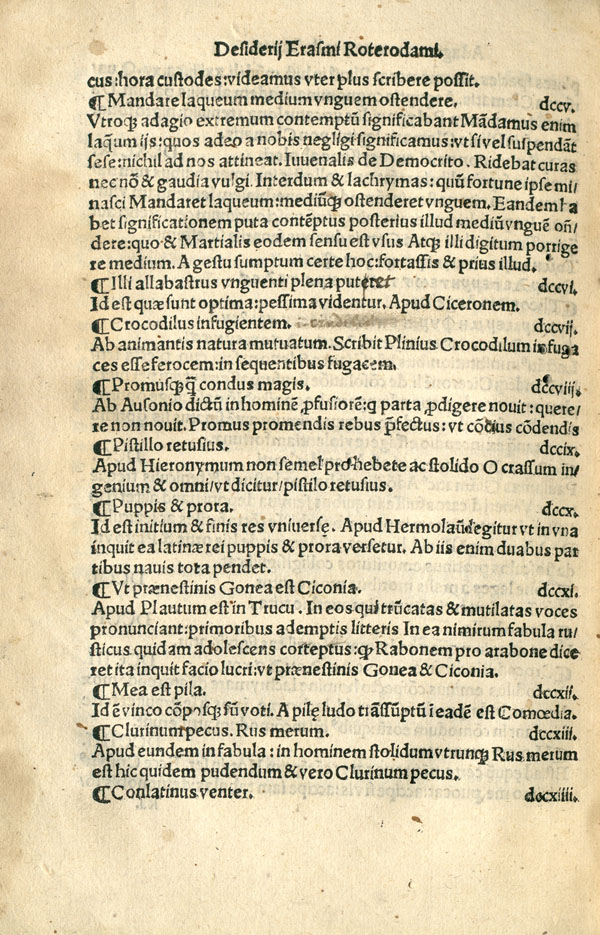 Desiderij Erasmi Roterodami.
cus: hora custodes: videamus vter plus scribere possit.
¶Mandare laqueum medium vnguem ostendere. dccv.
Vtroq̃ adagio extremum contemptũ significabant Mãdamus enim
laq̃um ijs: quos adeo a nobis negligi significamus: vt si vel suspendãt
sese: nichil ad nos attineat. Iuuenalis de Democrito. Ridebat curas
nec nõ & gaudia vulgi. Interdum & lachrymas: quũ fortune ipse mi/
nasci Mandaret laqueum: mediũq̃ ostenderet vnguem. Eandem ha
bet significationem puta contẽptus posterius illud mediũ vnguẽ oñ/
dere: quo & Martialis eodem sensu est vsus Atq̃ illi digitum porrige
re medium. A gestu sumptum certe hoc: fortassis & prius illud.
¶Illi allabastrus vnguenti plena puteret dccvi.
Id est quæ sunt optima: pessima videntur. Apud Ciceronem.
¶Crocodilus in fugientem. dccvij.
Ab animantis natura mutuatum. Scribit Plinius Crocodilum in fuga
ces esse ferocem: in sequentibus fugacem.
¶Promusq̃ q̃ condus magis. dccviij.
Ab Ausonio dictũ in hominẽ ꝓfusiorẽ: q parta ꝓdigere nouit: quere/
re non nouit. Promus promendis rebus p̃fectus: vt cõdus cõdendis
¶Pistillo retusius. dccix.
Apud Hieronymum non semel pro hebete ac stolido O crassum in/
genium & omni/vt dicitur/pistilo retusius.
¶Puppis & prora. dccx.
Id est initium & finis res vniuersę. Apud Hermolaũ legitur vt in vna
inquit ea latinæ rei puppis & prora versetur. Ab iis enim duabus par
tibus nauis tota pendet.
¶Vt prænestinis Gonea est Ciconia. dccxi.
Apud Plautum est in Trucu. In eos qui trũcatas & mutilatas voces
pronunciant: primoribus ademptis litteris In ea nimirum fabula ru/
sticus quidam adolescens correptus: ꝙ Rabonem pro arabone dice
ret ita inquit facio lucri: vt prænestinis Gonea & Ciconia.
¶Mea est pila. dccxii.
Id ẽ vinco cõposq̃ sũ voti. A pilę ludo trãssũptũ ĩ eadẽ est Comœdia.
¶Clurinum pecus. Rus merum. dccxiii.
Apud eundem in fabula: in hominem stolidum vtrunq̃ Rus merum
est hic quidem pudendum & vero Clurinum pecus.
¶Conlatinus venter. docxiiii.